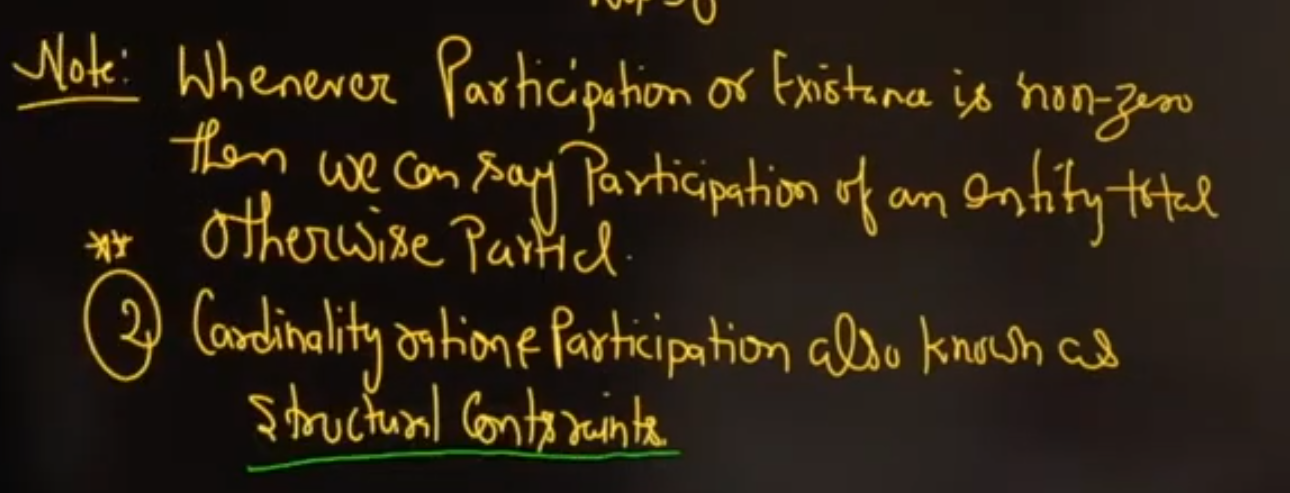 Note: Whenever Participation or Existance is non-zero
then we can say Participation of an entity total
** Otherwise Partial.
2 Cardinality ration & Participation also known as
Structural Constraints.